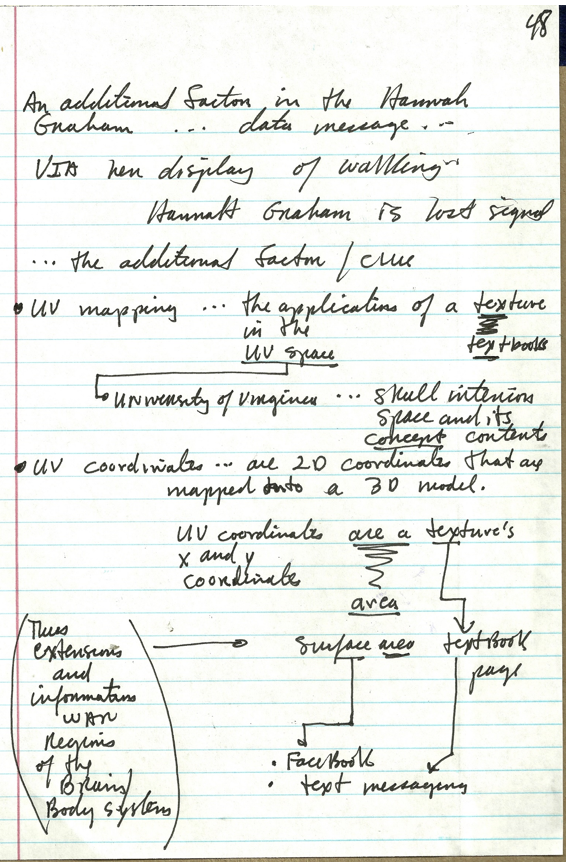 48
An additional factor in the Hannah
Graham ... data message ...
VIA her display of walking...
Hannah Graham is lost signal
... the additional factor / clue
• UV mapping ... the application of a texture
in the textbooks
UV space
• University of Virginia ... skull interior
space and its
concept contents
• UV coordinates ... are 2D coordinates that are
mapped onto a 3D model.
UV coordinates are a texture's
x and y
coordinates
area
Thus
extensions
and
information
WAR
Regions
of the
Brain/
Body System
Surface area textBook
page
• FaceBook
• text messaging